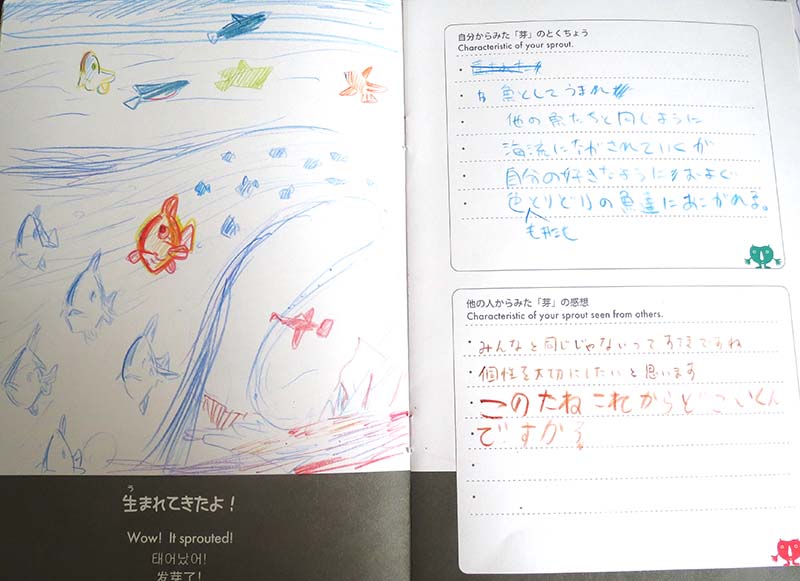 生まれてきたよ！
Wow! It sprouted!
태어났어!
发芽了!
自分からみた「芽」のとくちょう
Characteristic of your sprout.
魚としてうまれ
他の魚たちと同じように
海流にながされていくが
自分の好きなようにおよぐ
色とりどりの魚達にあこがれる。
他の人からみた「芽」の感想
Characteristic of your sprout seen from others.
みんなと同じじゃないってすてきですね
個性を大切にしたいと思います
このたねこれからどこいくん
ですか?